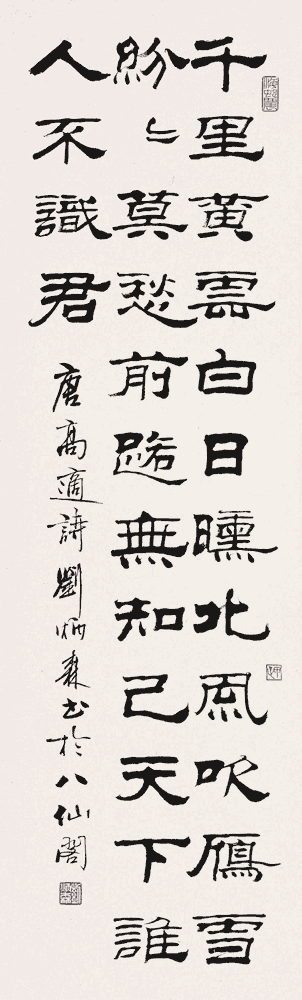 千里黄雲白日曛北風吹鴈雪
紛〻莫愁前路無知己天下誰
人不識君
唐高適詩劉炳森書於八仙閣